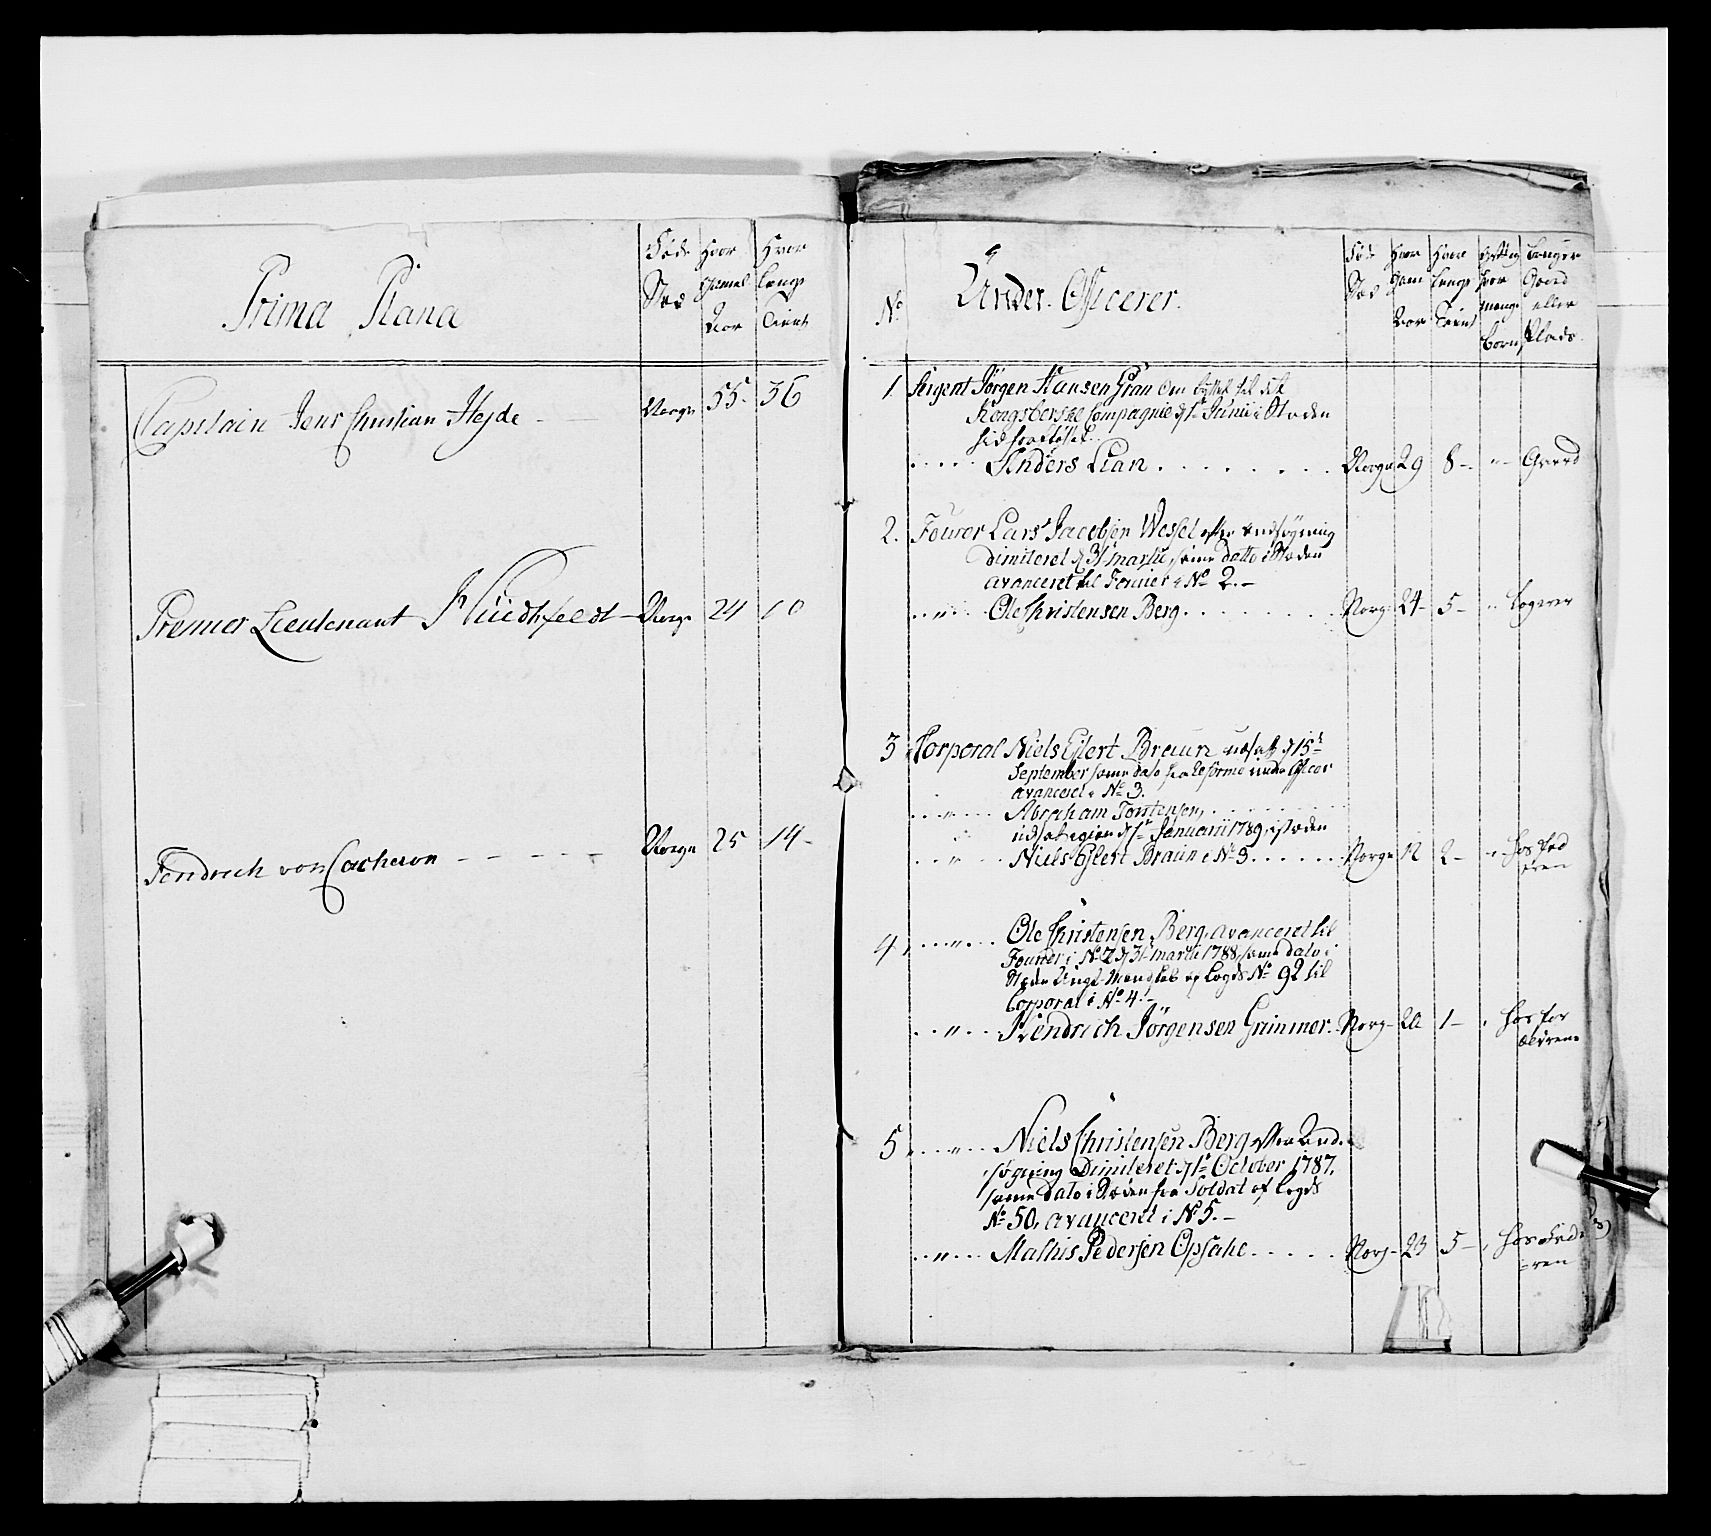 Prima Plana
Føde Stæd
Hvor Gamel Aar
Hvor Længe Tient
Capitain Jens Christian Hejde - Norge 55. 36
Premier Lieutenant Huidtfeldt - Norge 24 10
Fendrich von Cacheron - - - - - Norge 25 14 -
No
Under. Officerer.
Fød Stæd
Hvor Gam Aar
Hvor Længe Tient
hvor mange Børn
Gaard eller Plads.
1 Sergent Jørgen Hansen Gran til det
Kongsbergske Compagnie d 1te Junii i Stæden
Anders Lian . . . . . . . . Norge 29 8 - " - Gaard
2. Fourer Lars Jacobsen Wessel efter Ansøgning
Dimiteret d 31 Martii, samme datto i Stæden
avanceret til Fourier i No 2. -
Ole Christensen Berg . . . . . . Norg- 24- 5- " Logerer
3 Corporal Niels Ejlert Braun udsat d 15de
September samme dato fra Reforme under Officer
avanceret i No 3.
" Abraham Torstensen, . . . . . . .
udsat igien d 1te Januarii 1789, i stæden
" Niels Ejlert Braun i No 3 . . . . . . Norge 12 2 - " hos Fad
eren
4 " Ole Christensen Berg, avanceret til
Fourer i No 2 d 31 Martii 1788, samme dato i
Stæden Ungt Mandskab af Lægds No 92 til
Corporal i No 4. -
" Hendrich Jørgensen Grimmer. Norg- 20 1 - " hos for
ældrene
5 " Niels Christensen Berg efter Ande
søgning Dimiteret d 1te October 1787,
samme dato i Stæden fra Soldat af Lægds
No 50, avanceret i No 5. -
" Mathis Pedersen Opsahl . . . . . Norg- 23 5 - " hos Fad
-eren